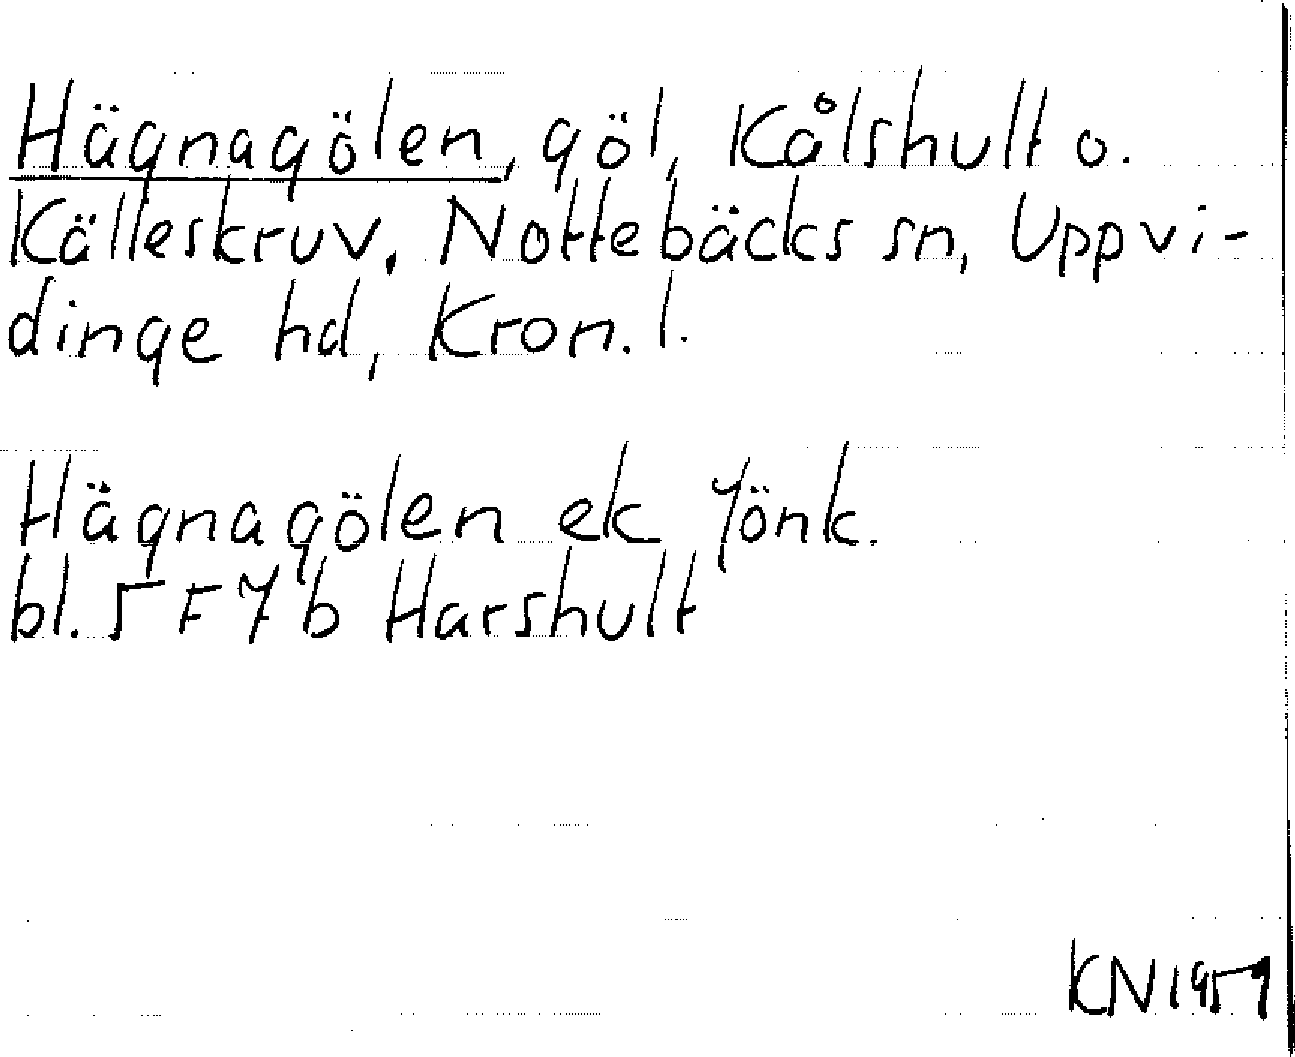 Hägnagölen, göl, Kålshult o.
Källeskruv, Nottebäcks sn, Uppvi-
dinge hd, Kron. l.
Hägnagölen ek Jönk.
bl. 5 F 7 b Harshult
KN 1959